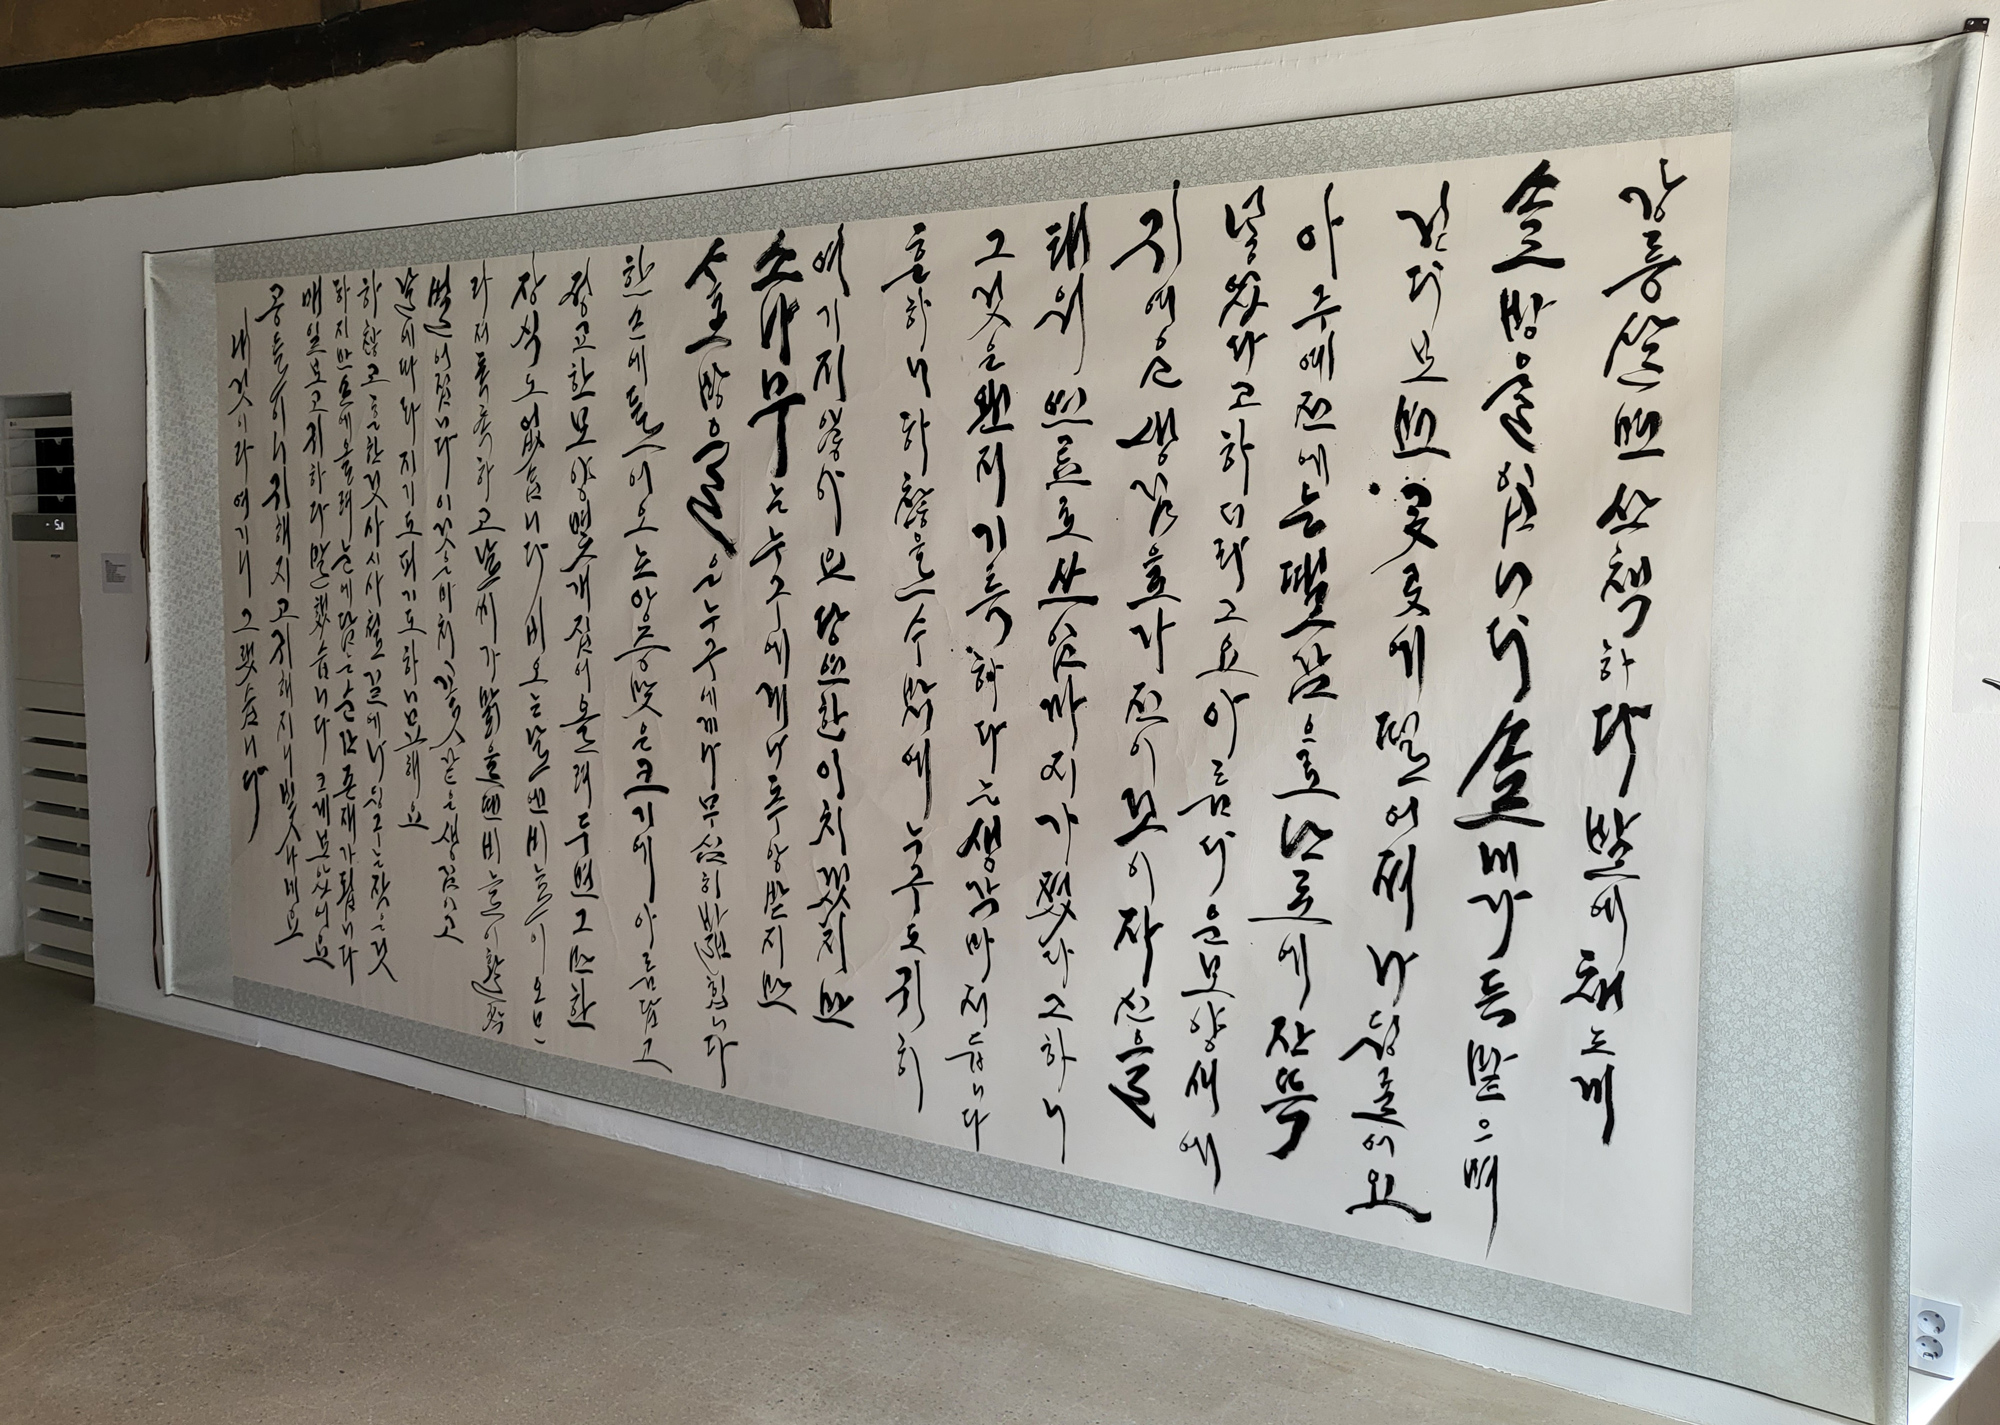 강릉살면 산책하다 발에 채는 게
솔방울입니다 솔내가득 맡으며
걷다보면 곳곳에 떨어져 나뒹굴어요
아주 예전에는 땔감으로 난로에 잔뜩
넣었다고 하더라구요 아름다운 모양새에
귀여운 생김을 가진 이것이 자신을
태워 연료로 쓰임까지 가졌다 그하니
그것은 왠지 기특하다는 생각마저 듭니다
흔하니 하찮을 수밖에 누구도 귀히
여기지 않아요 당연한 이치겠지만
소나무는 누구에게나 특 않받지만
솔방울은 누구에게나 무심히 밟힙니다
한 손에 들어오는 앙증맞은 크기에 아름답고
정교한 모양 몇 개 집어 올려두면 그만한
장식도 없습니다 비오는 날엔 비늘이 오므
라져 톡톡하고 날씨가 맑을 땐 비늘이 활짝
벌어집니다 이것은 마치 꽃같은 생김이고
날에 따라 지기도 피기도 하나보해요
하찮고 흔한 것 사시사철 길에 나뒹구는 작은 것
하지만 손에 올려 눈에 담는 순간 존재가 됩니다
매일 보고 귀하다 말했습니다 크게 보았어요
공들이니 귀해지고 귀해지니 빛나네요
내 것이라 여기니 그랬습니다